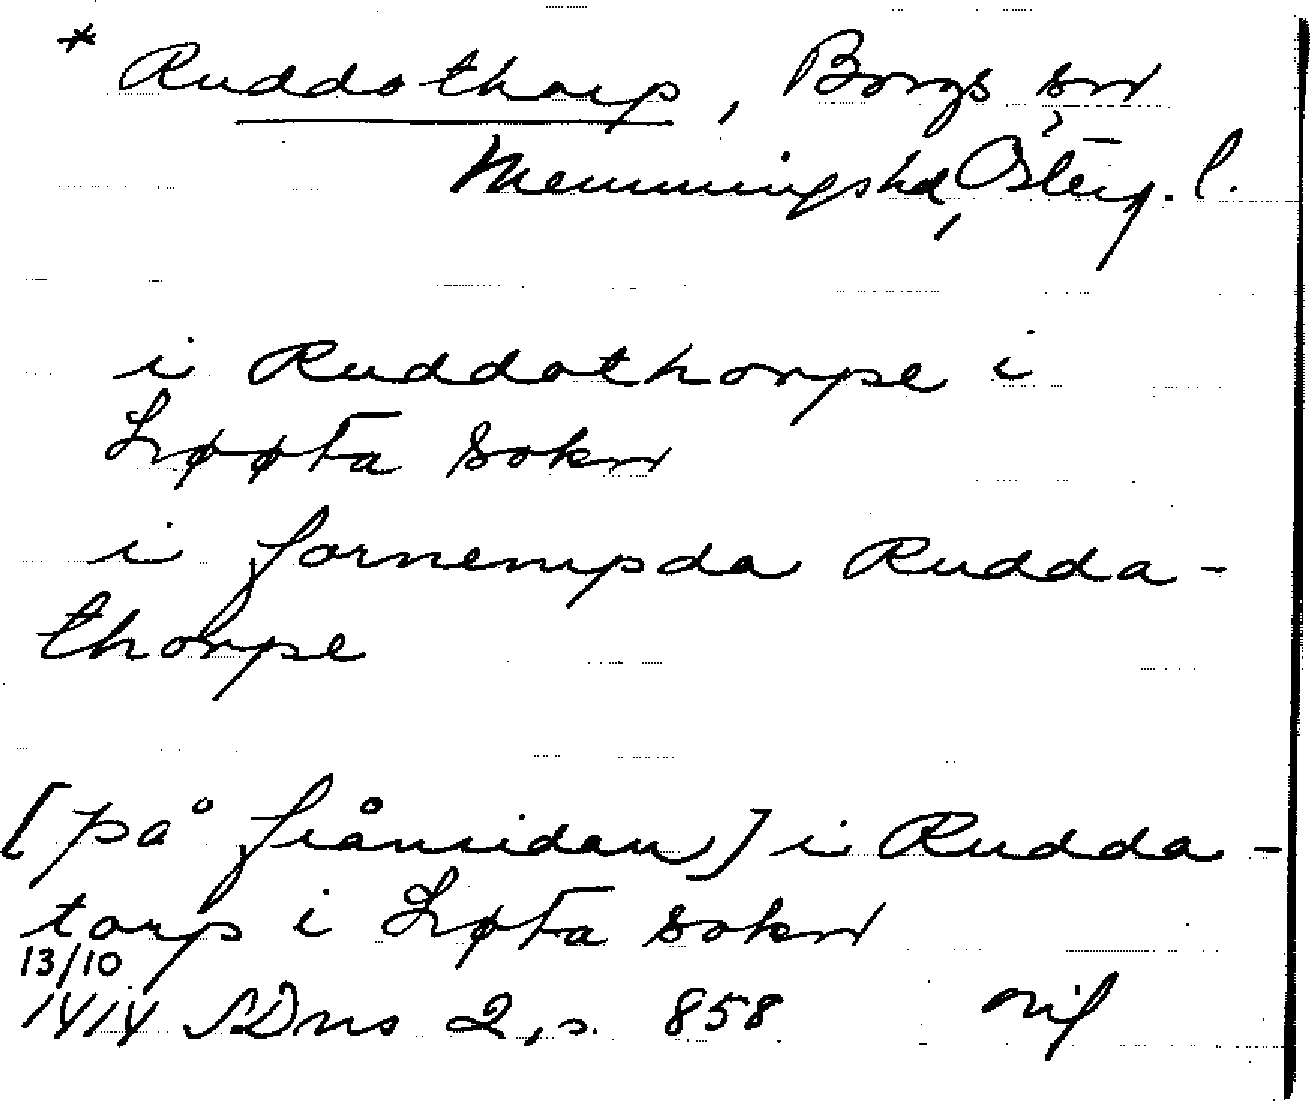 * Ruddothorp, Borgs sn,
Memmingshd, Österg. l.
i Ruddothorpe i
Løøta sokn
i fornempda Rudda-
thorpe
[på frånsidan] i Rudda-
torp i Løta sokn
13/10
1414 SDns 2, s. 858